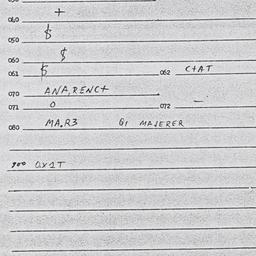 040 +
050 $
060 $
061 $ 062 C+AT
070 ANA,RENC+
071 0 072 –
080 MA,R3 G1 MAJERER
900 0X1T